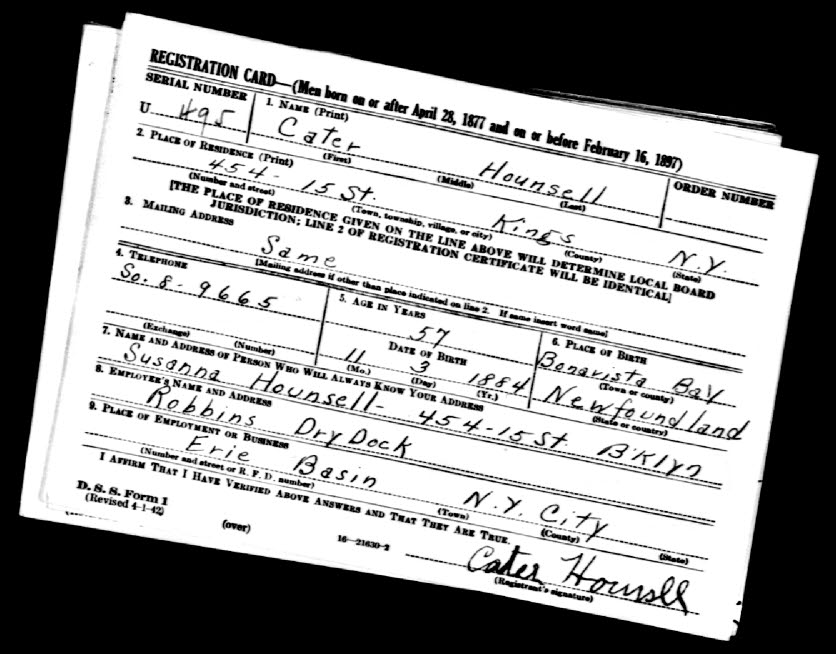 REGISTRATION CARD—(Men born on or after April 28, 1877 and on or before February 16, 1897)
SERIAL NUMBER 1. NAME (Print) ORDER NUMBER
U 495 Cater Hounsell
(First) (Middle) (Last)
2. PLACE OF RESIDENCE (Print)
454 - 15 St. Kings N.Y.
(Number and street) (Town, township, village, or city) (County) (State)
[THE PLACE OF RESIDENCE GIVEN ON THE LINE ABOVE WILL DETERMINE LOCAL BOARD
JURISDICTION; LINE 2 OF REGISTRATION CERTIFICATE WILL BE IDENTICAL]
3. MAILING ADDRESS
Same
[Mailing address if other than place indicated on line 2. If same insert word same]
4. TELEPHONE 5. AGE IN YEARS 6. PLACE OF BIRTH
So. 8-9665 57 Bonavista Bay
DATE OF BIRTH (Town or county)
11 3 1884 Newfoundland
(Exchange) (Number) (Mo.) (Day) (Yr.) (State or country)
7. NAME AND ADDRESS OF PERSON WHO WILL ALWAYS KNOW YOUR ADDRESS
Susanna Hounsell - 454-15 St B'klyn
8. EMPLOYER'S NAME AND ADDRESS
Robbins Dry Dock
9. PLACE OF EMPLOYMENT OR BUSINESS
Erie Basin N.Y. City
(Number and street or R. F. D. number) (Town) (County) (State)
I AFFIRM THAT I HAVE VERIFIED ABOVE ANSWERS AND THAT THEY ARE TRUE.
D. S. S. Form 1
(Revised 4-1-42) (over) 16—21630-2 Cater Hounsell
(Registrant's signature)